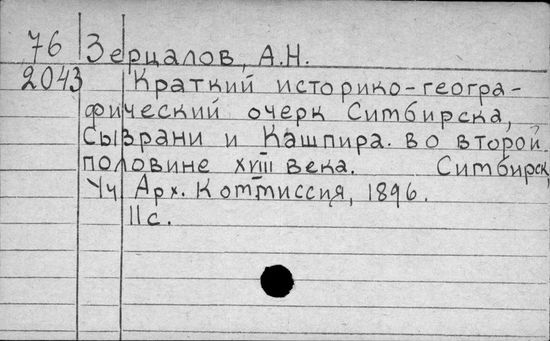 76 Зерцалов, А.Н.
2043 Краткий историко-геогра-
фический очерк Симбирска,
Сызрани и Кашпира. во второй.
половине XVIII века. Симбирск,
Уч. Арх. Коммиссия, 1896.
11с.